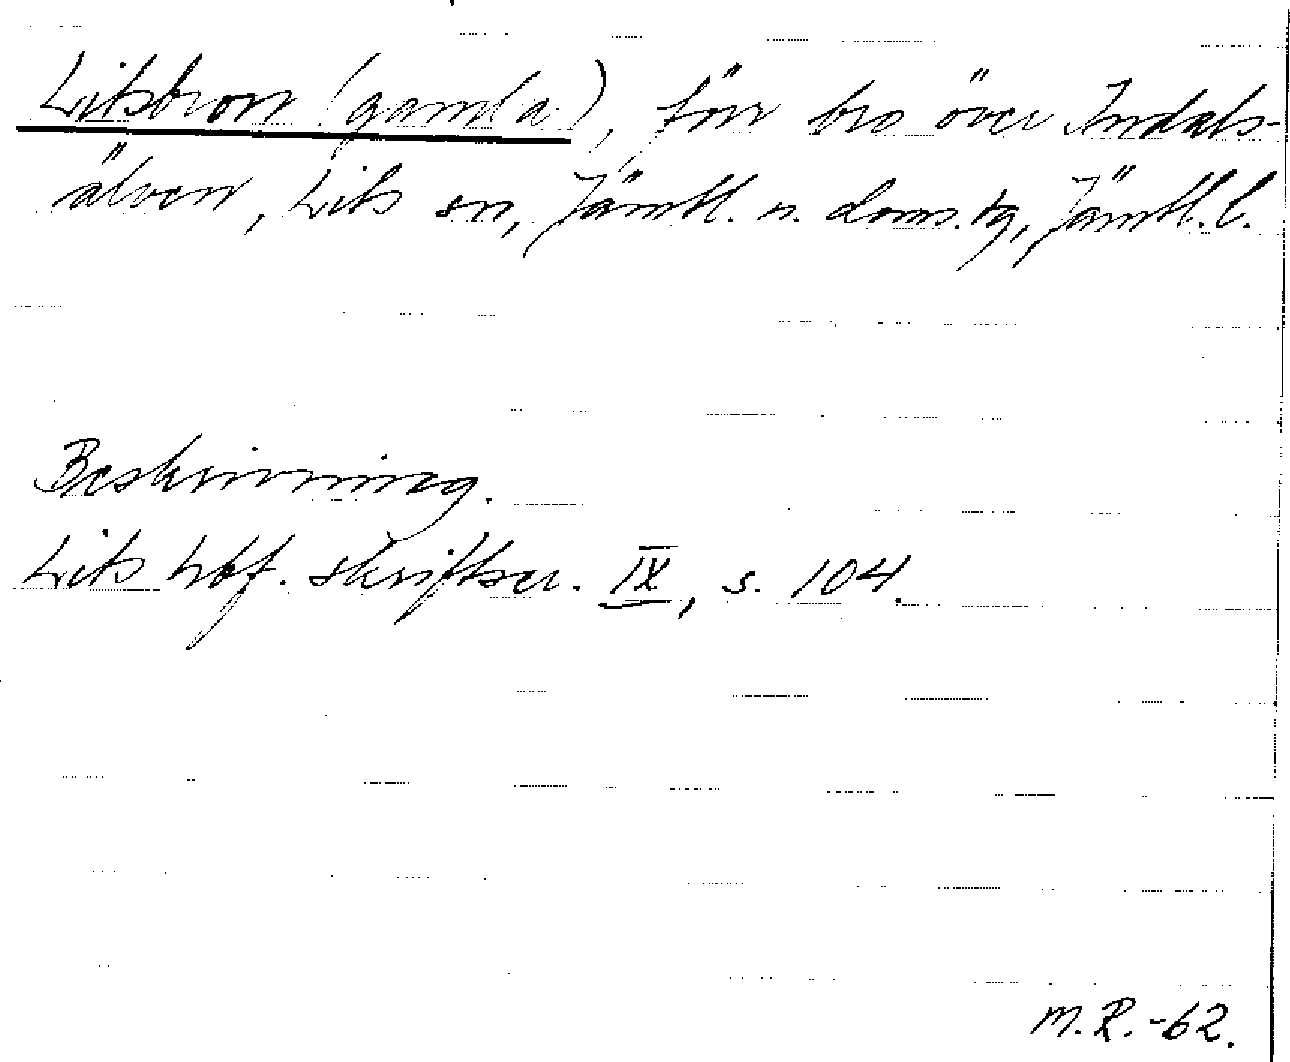 Litsbron (gamla), förr bro över Indals-
älven, Lits sn, Jämtl. n. doms.tg, Jämtl. l.
Beskrivning.
Lits hbf. skriftser. IX, s. 104.
M.R.-62.